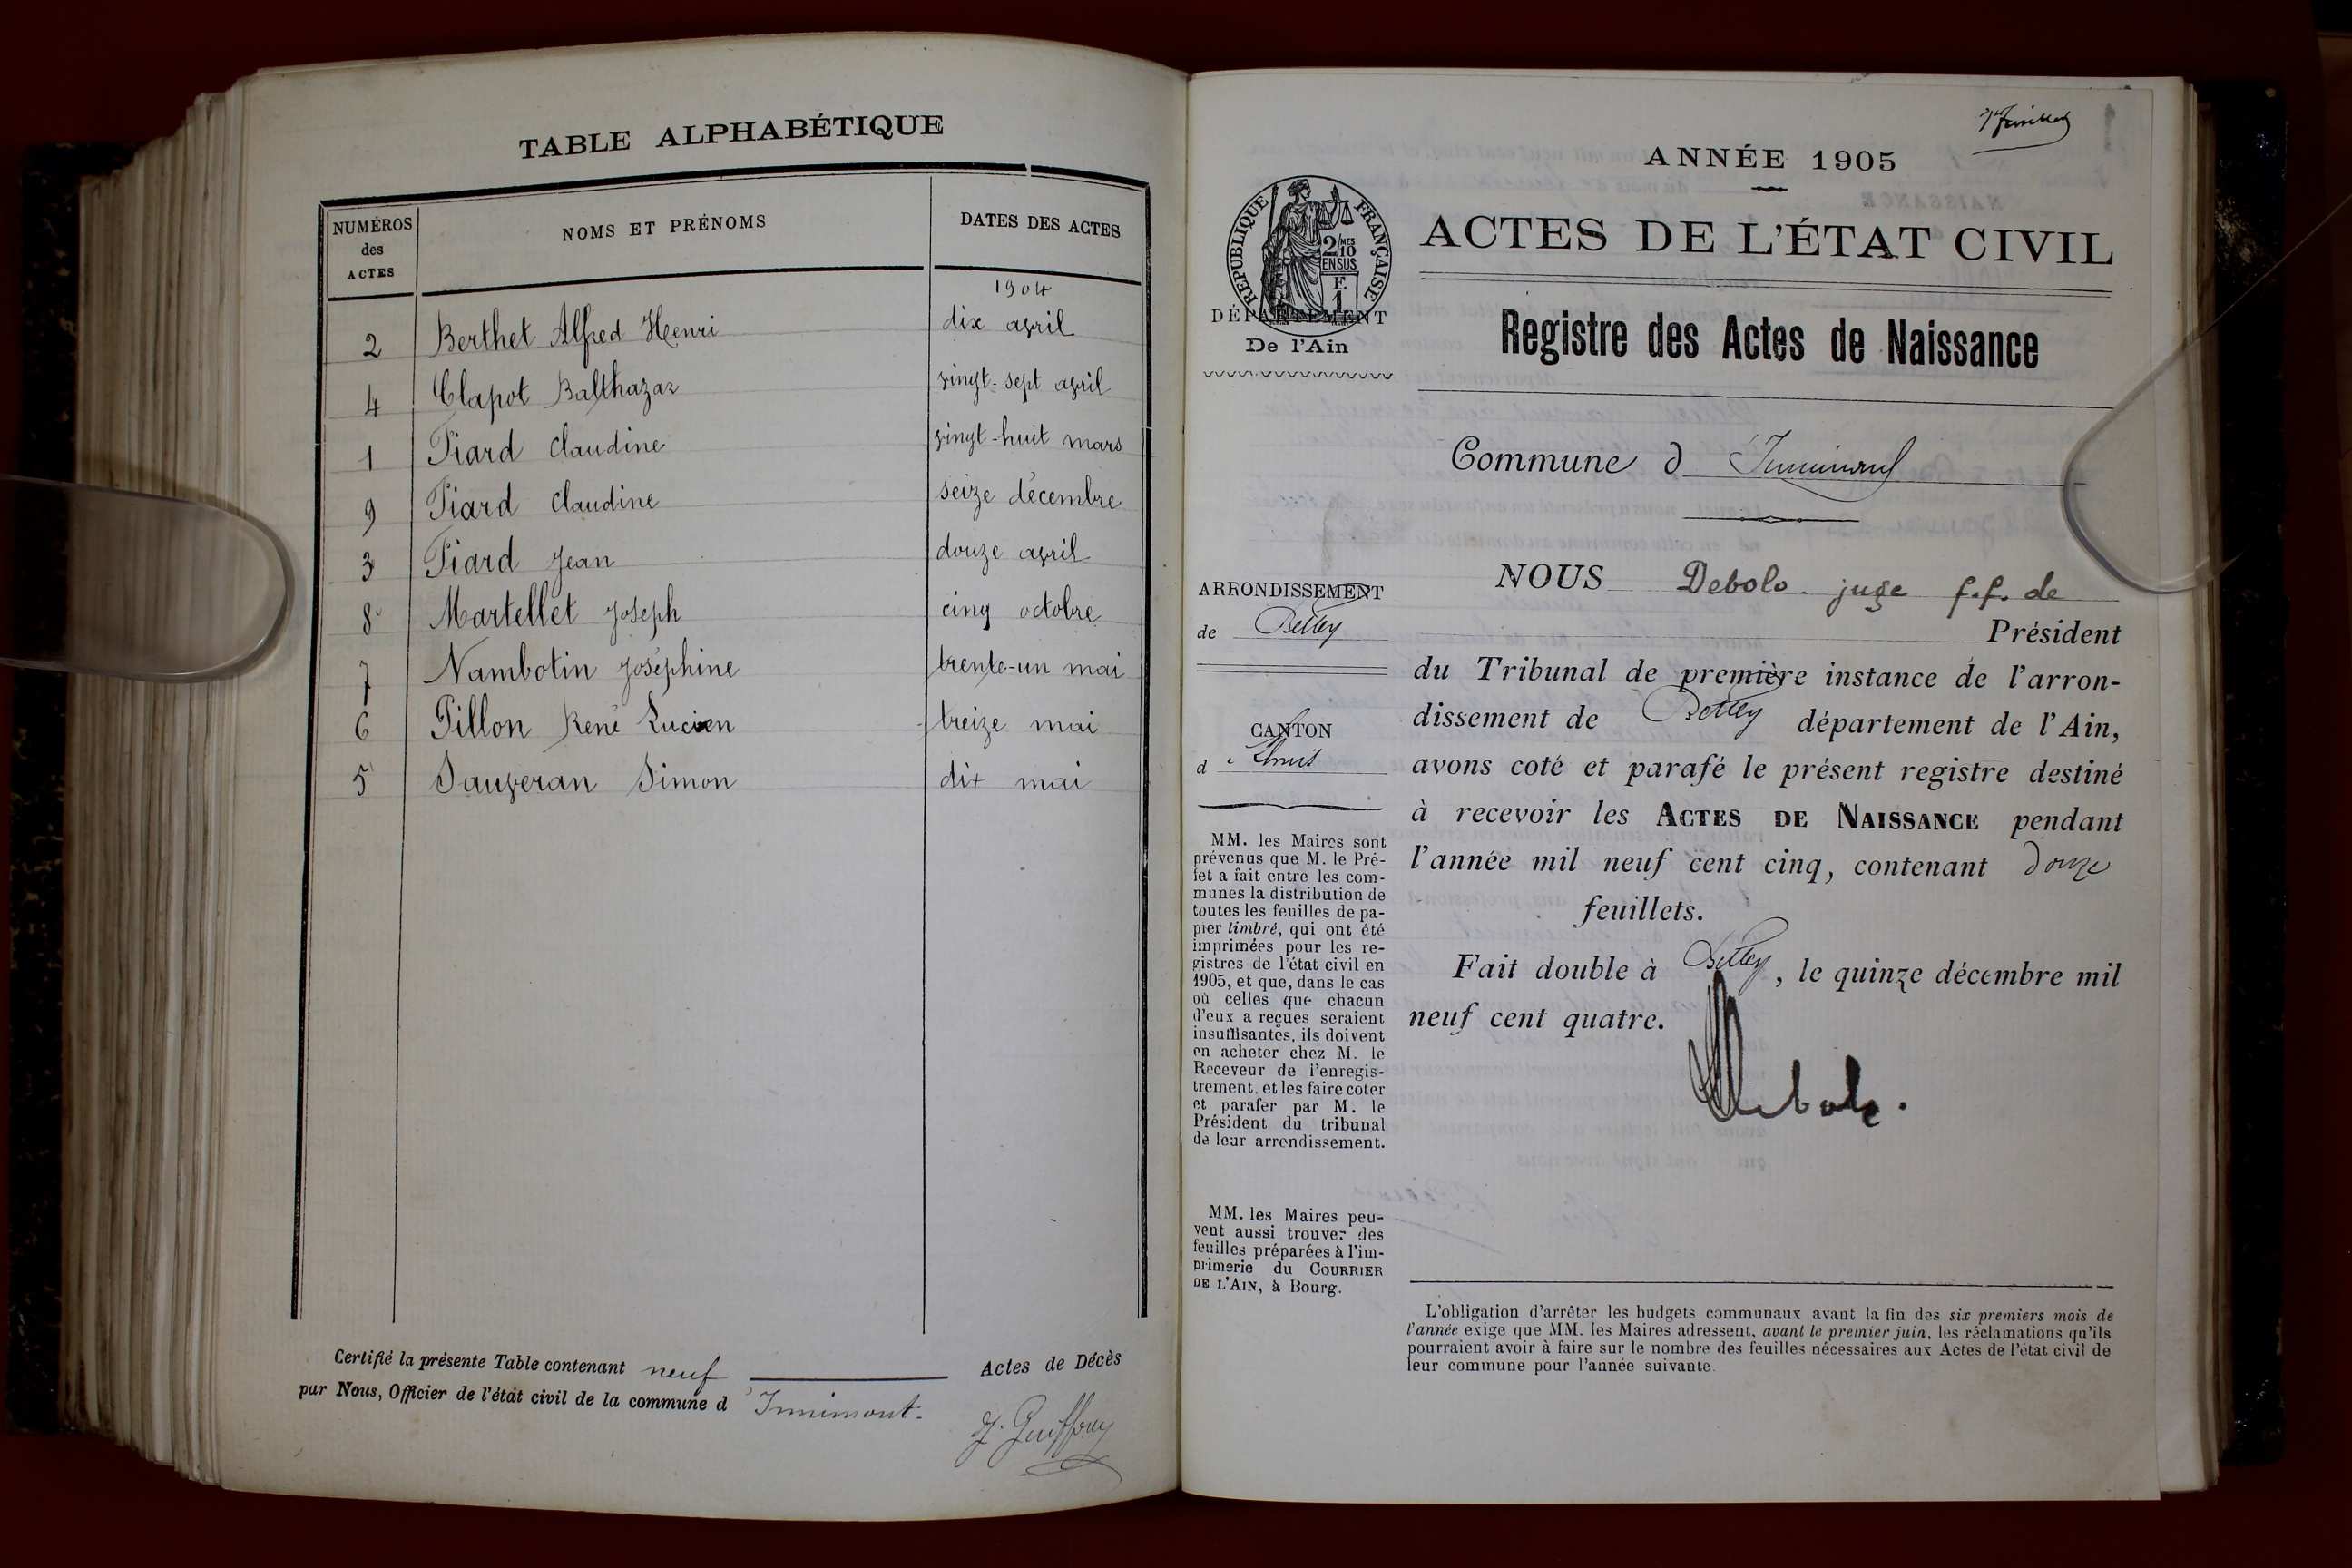 TABLE ALPHABÉTIQUE
NUMÉROS des ACTES
NOMS ET PRÉNOMS
DATES DES ACTES
1904
2 Berthet Alfred Henri dix avril
4 Clapot Balthazar vingt-sept avril
1 Piard Claudine vingt-huit mars
9 Piard Claudine seize décembre
3 Piard Jean douze avril
8 Martellet Joseph cinq octobre
7 Nambotin Joséphine trente-un mai
6 Pillon René Lucien treize mai
5 Sauveran Simon dix mai
Certifié la présente Table contenant neuf Actes de Décès
par Nous, Officier de l'état civil de la commune d'Innimont.
ANNÉE 1905
RÉPUBLIQUE FRANÇAISE
2/10 MES
EN SUS
F.
1
DÉPARTEMENT
De l'Ain
ACTES DE L'ÉTAT CIVIL
Registre des Actes de Naissance
Commune d Innimont
ARRONDISSEMENT
de Belley
CANTON
d
MM. les Maires sont
prévenus que M. le Pré-
fet a fait entre les com-
munes la distribution de
toutes les feuilles de pa-
pier timbré, qui ont été
imprimées pour les re-
gistres de l'état civil en
1905, et que, dans le cas
où celles que chacun
d'eux a reçues seraient
insuffisantes, ils doivent
en acheter chez M. le
Receveur de l'enregis-
trement, et les faire coter
et parafer par M. le
Président du tribunal
de leur arrondissement.
MM. les Maires peu-
vent aussi trouver des
feuilles préparées à l'im-
primerie du COURRIER
DE L'AIN, à Bourg.
NOUS Debolo juge f.f. de
Président
du Tribunal de première instance de l'arron-
dissement de Belley département de l'Ain,
avons coté et parafé le présent registre destiné
à recevoir les ACTES DE NAISSANCE pendant
l'année mil neuf cent cinq, contenant douze
feuillets.
Fait double à Belley, le quinze décembre mil
neuf cent quatre.
Debolo.
L'obligation d'arrêter les budgets communaux avant la fin des six premiers mois de
l'année exige que MM. les Maires adressent, avant le premier juin, les réclamations qu'ils
pourraient avoir à faire sur le nombre des feuilles nécessaires aux Actes de l'état civil de
leur commune pour l'année suivante.